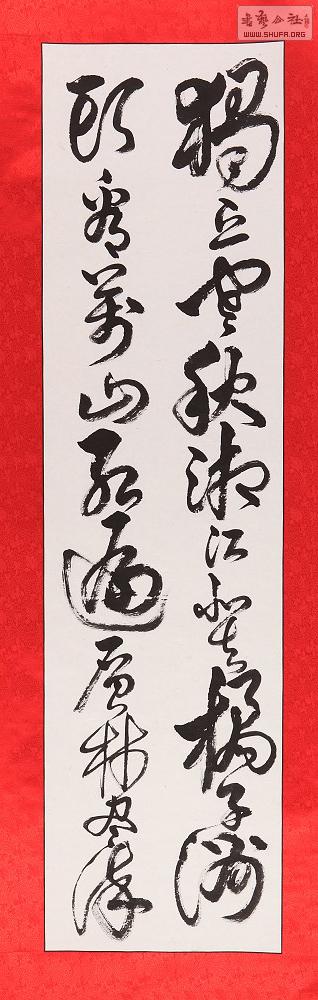 書藝公社
WWW.SHUFA.ORG
獨立寒秋湘江北去橘子洲
頭看萬山紅遍層林盡染